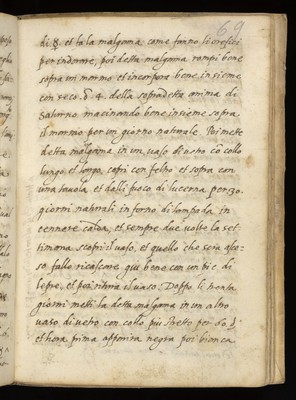 69
di et fa la malgama, come fanno li orefici
per indorare, poi detta malgama rompi bene
sopra un marmo et incorpora bene insieme
con seco 4. della sopradetta anima de
saturno macinando bene insieme sopra
il marmo per un giorno naturale. Poi mette
detta malgama in un vaso di vetro cō collo
lungo, et longo, copri con feltro et sopra con
una tavola, et dalli fuoco di lucerna per 30.
giorni naturali in forno di lampada, in
cennere calda, et sempre due volte la set-
timana scopri il vaso, et quello che sera asce-
so fallo ricascare giù bene con un pie di
lepre, et poi ritura il vaso. Doppo li trenta
giorni metti la detta malgama in un altro
vaso di vetro con collo più stretto per 60.
et hora prima apparira negra poi bianca